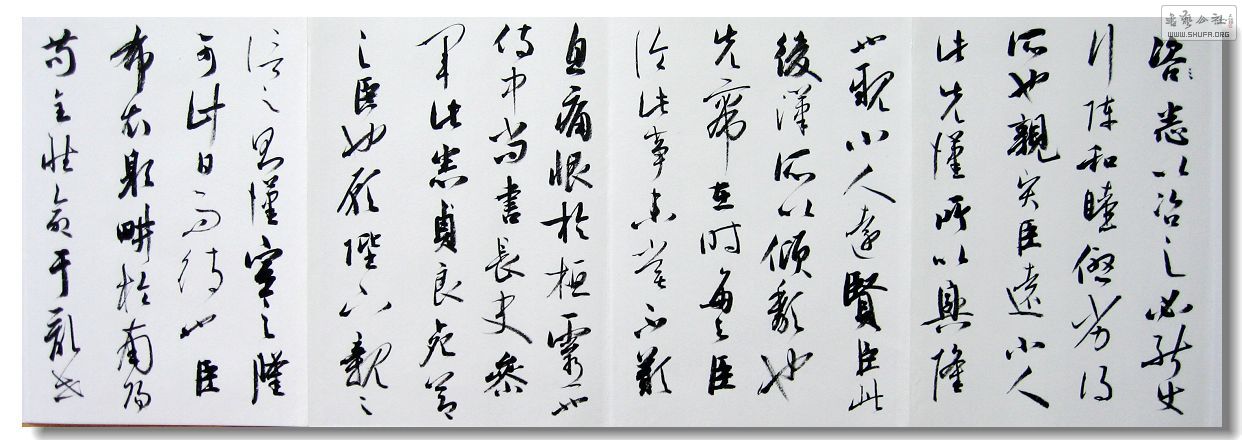 咨悉以咨之必能使
行陣和睦優劣得
所也親賢臣遠小人
此先漢所以興隆
也親小人遠賢臣此
後漢所以傾頹也
先帝在時每與臣
論此事未嘗不歎
息痛恨於桓靈也
侍中尚書長史參
軍此悉貞良死節
之臣也願陛下親之
信之則漢室之隆
可計日而待也臣
布衣躬耕於南陽
苟全性命于亂世
書藝公社
WWW.SHUFA.ORG